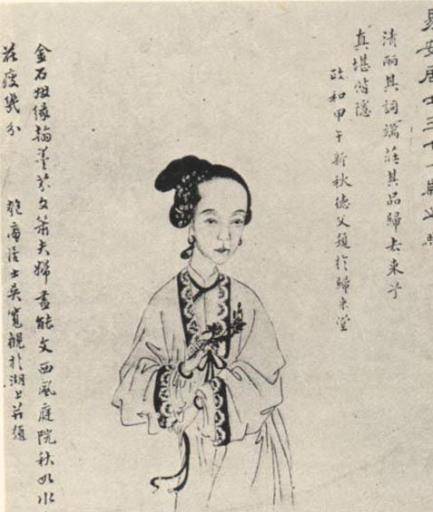 易安居士三十一歲之照
清麗其詞端莊其品歸去來兮
真堪偕隱
政和甲午新秋德父題於歸來堂
金石姻緣翰墨芬文簫夫婦盡能文西風庭院秋如水
花瘦幾分 匏庵居士吳寬觀於湖上并題